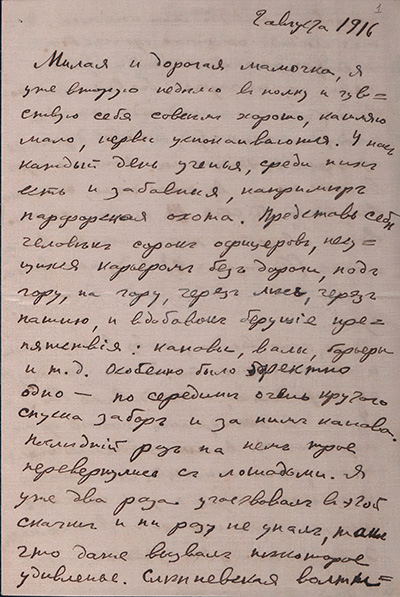 2 августа 1916
1
Милая и дорогая мамочка, я
уже вторую недѣлю въ полку и чув=
ствую себя совсѣмъ хорошо, кашляю
мало, нервы успокаиваются. У насъ
каждый день ученья, среди нихъ
есть и забавныя, напримѣръ
парфорсная охота. Представь себѣ
человѣкъ сорокъ офицеровъ, несу=
щихся карьеромъ безъ дороги, подъ
гору, на гору, черезъ лѣсъ, черезъ
пашню, и вдобавокъ берущіе пре=
пятствія: канавы, валы, барьеры
и т.д. Особенно было эфектно
одно — по серединѣ очень крутого
спуска заборъ и за нимъ канава.
Послѣдній разъ на немъ трое
перевернулись съ лошадьми. Я
уже два раза участвовалъ въ этой
скачкѣ и ни разу не упалъ, такъ
что даже вызвалъ нѣкоторое
удивленье. Слѣпневская вольти=